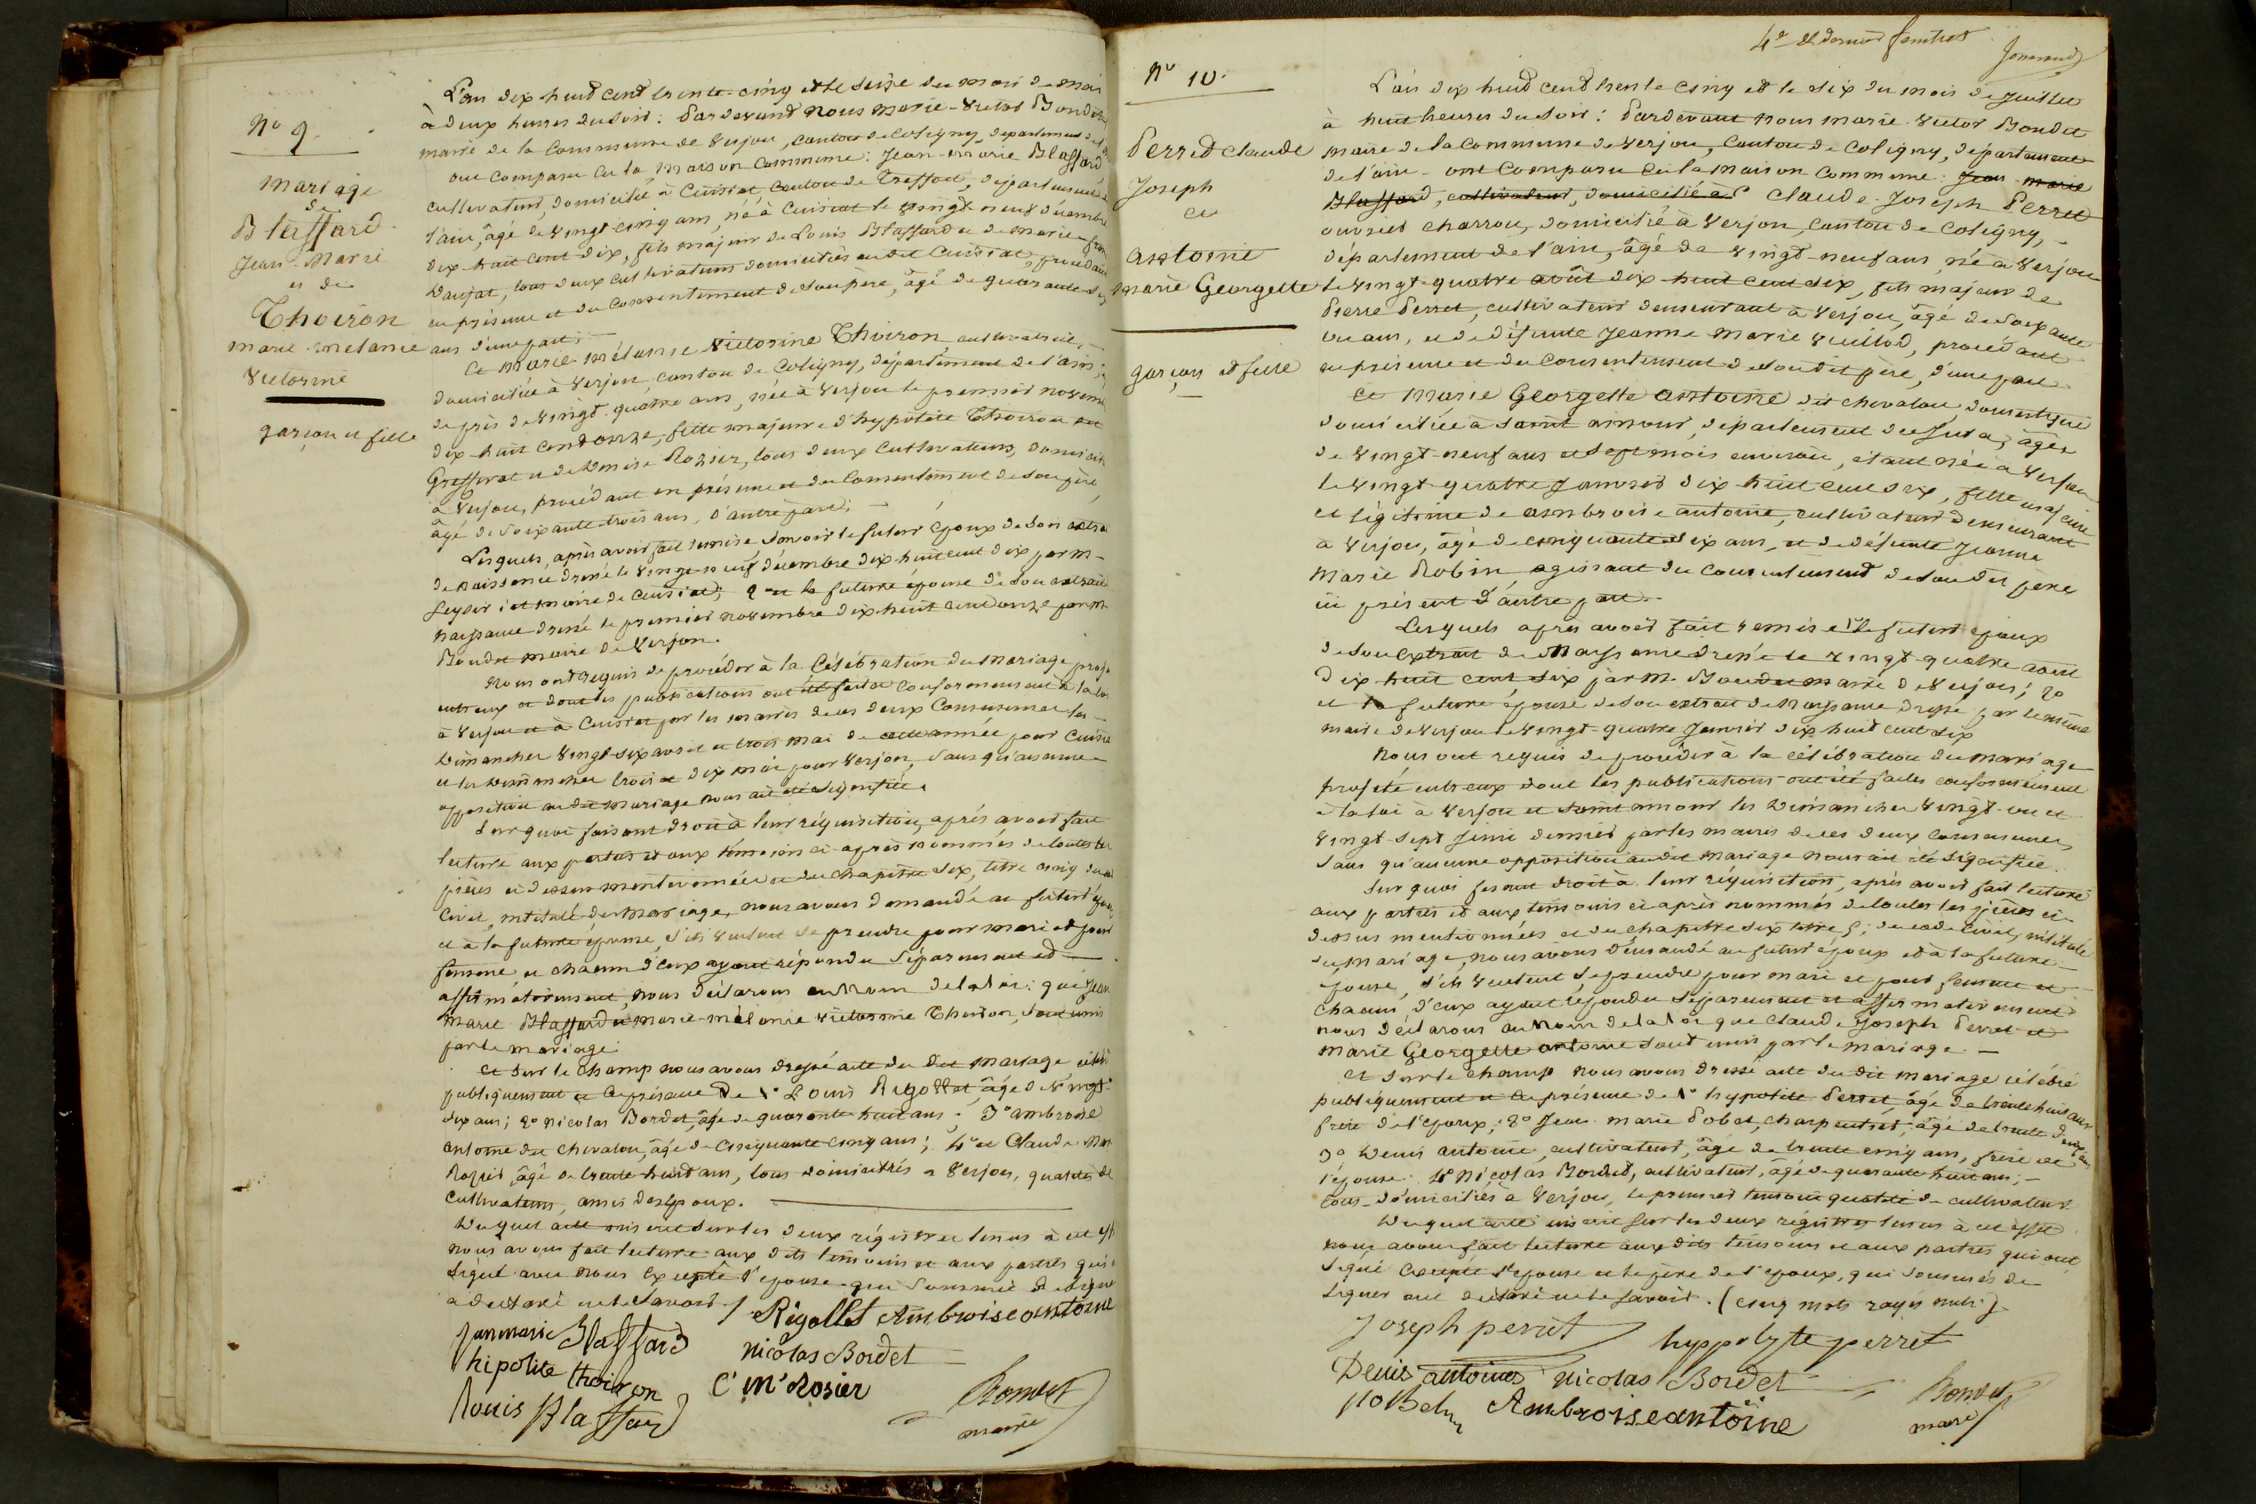 Nº 9.
Mariage
de
Blaffard
Jean-Marie
et de
Thoiron
marie mélanie
Victorine
garçon et fille
L'an dix huit cent trente-cinq et le seize du mois de mai
à deux heures du soir : Pardevant nous marie-Victor Bondet
maire de la commune de Verjon, canton de Coligny, département de
ont comparu en la maison commune : Jean-marie Blaffard
cultivateur, domicilié à Cuisiat, canton de Treffort, département de
l'ain, âgé de vingt-cinq ans, né à Cuisiat le vingt neuf décembre
dix-huit cent dix, fils majeur de Louis Blaffard et de marie
tous deux cultivateurs domiciliés au dit Cuisiat, procédant
en présence et du consentement de son père, âgé de quarante
ans d'une part ;
Et marie-mélanie Victorine Thoiron cultivatrice,
domiciliée à Verjon, canton de Coligny, département de l'ain,
de près de vingt-quatre ans, née à Verjon le premier novembre
dix-huit cent onze, fille majeure d'hypolite Thoiron
et de Denise Rozier, tous deux cultivateurs, domiciliés
à Verjon, procédant en présence et du consentement de son père,
âgé de soixante-trois ans, d'autre part ;
Lesquels, après avoir fait remise savoir le futur époux de son extrait
de naissance dressé le vingt-neuf décembre dix-huit cent dix par m.
maire de Cuisiat ; 2º et la future épouse de son extrait
naissance dressé le premier novembre dix-huit cent onze par m.
Bondet maire de Verjon.
Nous ont requis de procéder à la célébration du mariage projeté
entr'eux et dont les publications ont été faites conformément à la loi
à Verjon et à Cuisiat par les maires de ces deux communes les
Dimanches vingt-six avril et trois mai de cette année pour Cuisiat
et les Dimanches trois et dix mai pour Verjon, sans qu'aucune
opposition au dit mariage nous ait été signifiée.
Sur quoi faisant droit à leur réquisition, après avoir fait
lecture aux parties et aux témoins ci-après nommés de toutes les
pièces ci-dessus mentionnées et du chapitre six, titre cinq du code
civil, intitulé du mariage, nous avons demandé au futur époux
et à la future épouse, s'ils veulent se prendre pour mari et pour
femme et chacun d'eux ayant répondu séparément et
affirmativement, nous déclarons au nom de la loi : que Jean
Marie Blaffard et marie-mélanie Victorine Thoiron, sont unis
par le mariage.
Et sur le champ nous avons dressé acte du dit mariage célébré
publiquement en la présence de 1º Louis Rigollet, âgé de vingt-
six ans ; 2º nicolas Bordet, âgé de quarante-huit ans ; 3º ambroise
antoine dit chevalon, âgé de cinquante-cinq ans ; 4º et Claude marie
Rozier, âgé de trente-huit ans, tous domiciliés à Verjon, qualités de
cultivateurs, amis des époux.
Duquel acte inscrit sur les deux régistres tenus à cet effet
nous avons fait lecture aux dits témoins et aux parties qui ont
signé avec nous excepté l'épouse que sommée de signer
a déclaré ne le savoir./.
Rigollet Ambroise antoine
jean marie Blaffard
nicolas Bordet
hipolite thoiron
C. M. Rosier
louis Blaffard
Bondet
maire
4e et dernier feuillet
Nº 10.
Perret claude
Joseph
et
antoine
marie Georgette
garçon et fille
L'an dix huit cent trente cinq et le six du mois de Juillet
à huit heures du soir : Pardevant nous marie-Victor Bondet
maire de la commune de Verjon, canton de Coligny, département
de l'ain - ont comparu en la maison commune : Jean-marie
Blaffard, cultivateur, domicilié à Claude-Joseph Perret
ouvrier charron, domicilié à Verjon, canton de Coligny,
département de l'ain, âgé de vingt-neuf ans, né à Verjon
le vingt-quatre août dix-huit cent six, fils majeur de
Pierre Perret, cultivateur demeurant à Verjon, âgé de soixante
un ans, et de défunte Jeanne marie Vuillod, procédant
en présence et du consentement de son dit père, d'une part
Et Marie Georgette antoine dit chevalon, domestique
domiciliée à saint amour, département du Jura, âgée
de vingt-neuf ans et sept mois environ, étant née à Verjon
le vingt-quatre Janvier dix-huit cent six, fille majeure
et légitime de ambroise antoine, cultivateur demeurant
à Verjon, âgé de cinquante six ans, et de défunte Jeanne
Marie Robin, agissant du consentement de son dit père
ici présent d'autre part.
Lesquels après avoir fait remise 1º le futur époux
de son extrait de naissance dressé le vingt-quatre août
dix-huit cent six par m. Bondet maire de Verjon ; 2º
et la future épouse de son extrait de naissance dressé par le même
maire de Verjon le vingt-quatre Janvier dix huit cent six
Nous ont requis de procéder à la célébration du mariage
projeté entr'eux dont les publications ont été faites conformément
à la loi à Verjon et saint amour les Dimanches vingt-un et
vingt-sept Juin dernier par les maires de ces deux communes,
sans qu'aucune opposition au dit mariage nous ait été signifiée.
Sur quoi fesant droit à leur réquisition, après avoir fait lecture
aux parties et aux témoins ci-après nommés de toutes les pièces ci-
dessus mentionnées et du chapitre six titre 5 : du code civil, intitulé
du mariage, nous avons demandé au futur époux et à la future
épouse, s'ils veulent se prendre pour mari et pour femme et
chacun d'eux ayant répondu séparément et affirmativement
nous déclarons au nom de la loi que claude Joseph Perret et
marie Georgette antoine sont unis par le mariage. —
Et sur le champ nous avons dressé acte du dit mariage célébré
publiquement en la présence de 1º hypolite Perret, âgé de trente huit ans
frère de l'époux ; 2º Jean marie Pobet, charpentier, âgé de trente deux ans
3º Denis antoine, cultivateur, âgé de trente cinq ans, frère de
l'épouse. 4º Nicolas Bordet, cultivateur, âgé de quarante huit ans ; —
tous domiciliés à Verjon, le premier témoin qualité de cultivateur.
Duquel acte inscrit sur les deux régistres tenus à cet effet
nous avons fait lecture aux dits témoins et aux parties qui ont
signé excepté l'épouse et le père de l'époux, qui sommés de
signer ont déclaré ne le savoir. (cinq mots rayés nuls).
Joseph perret
hyppolyte perret
Denis antoine nicolas Bordet
Ambroise antoine
Bondet
maire